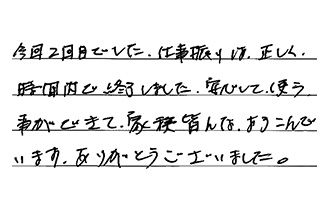 今回2回目でした.仕事振りは,正しく.
時間内で終了しました.安心して,使う,
事ができて.家族皆んな,よろこんで
います.ありがとうございました。